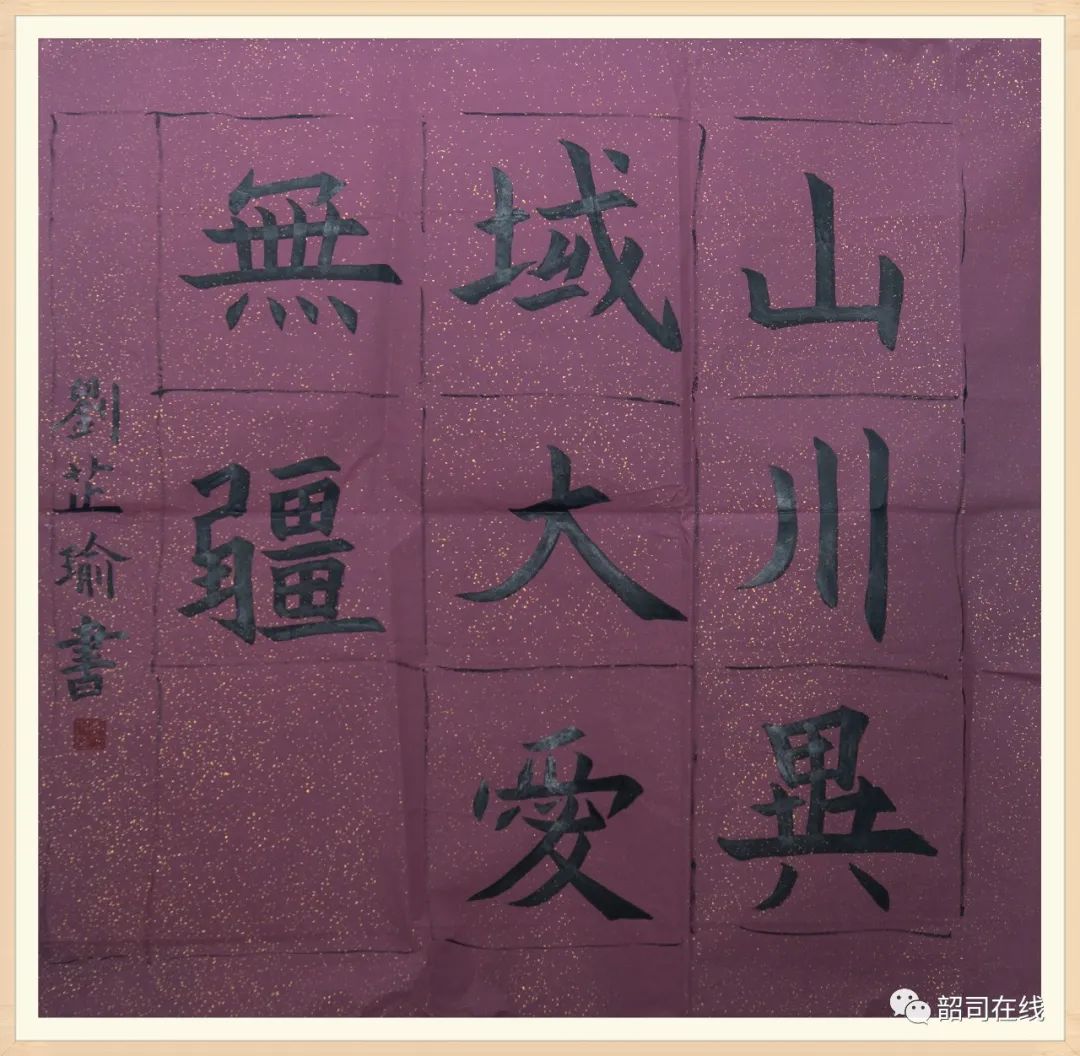 山川異
域大愛
無疆
劉芷瑜書
韶司在线